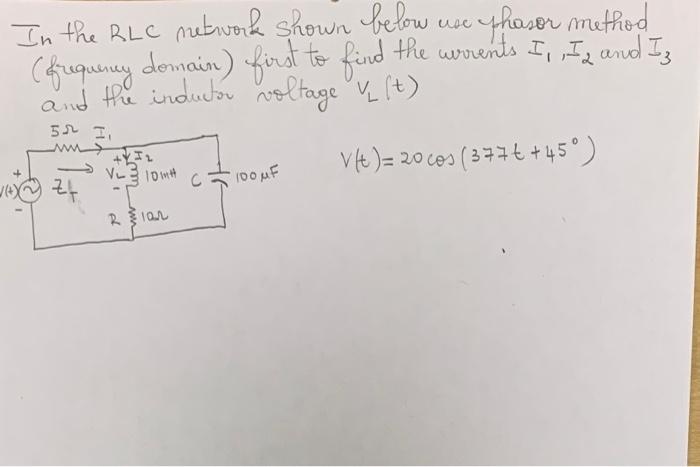 In the RLC network shown below use phasor method
(frequency domain) first to find the currents I1, I2 and I3
and the inductor voltage VL(t)
5Ω I1
+ I2
V(t)= 20cos(377t+45°)
VL 10mH C 100μF
+
V(t) Zt
-
-
R 10Ω